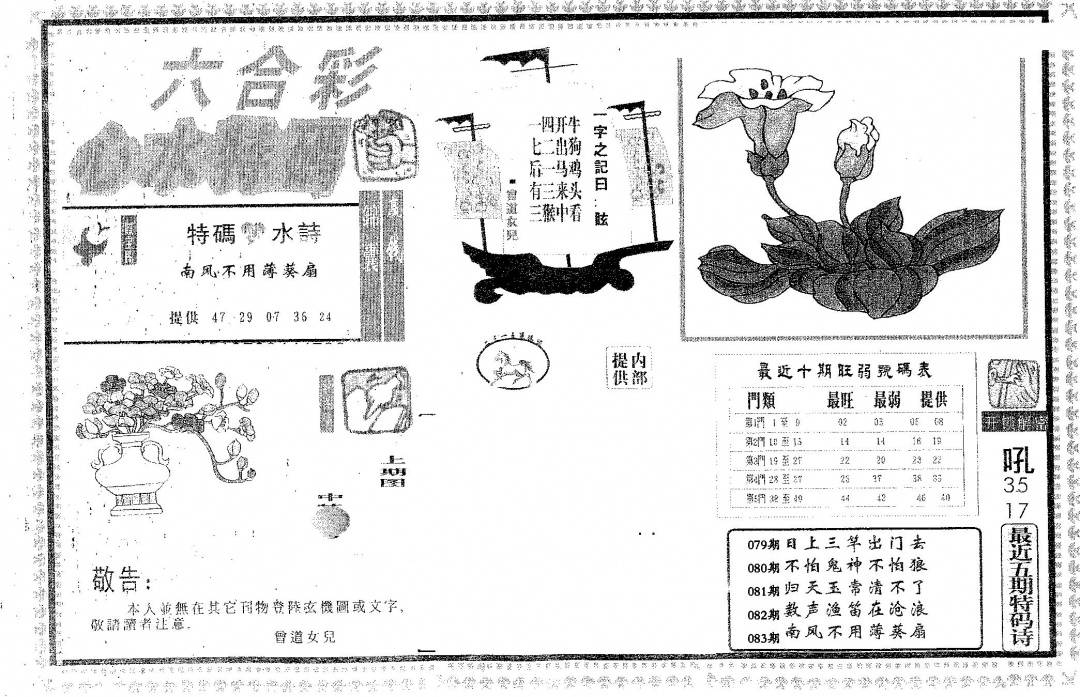 六合彩
特碼 水詩
南风不用薄葵扇
提供 47 29 07 36 24
一字之記日:眩
牛狗鸡头看
开出马来中
四二一三猴
一七后有三
曾道女兒
内部提供
上期图
敬告:
本人並無在其它刊物登陸玄機圖或文字,
敬請讀者注意.
曾道女兒
最近十期旺弱號碼表
門類 最旺 最弱 提供
第1門 1 至 9 02 03 05 08
第2門 10 至 15 14 14 16 19
第3門 19 至 27 22 20 23 22
第4門 28 至 37 23 37 38 35
第5門 38 至 49 44 43 46 40
吼
35
17
最近五期特码诗
079期 日上三竿出门去
080期 不怕鬼神不怕狼
081期 归天玉常清不了
082期 数声渔笛在沧浪
083期 南风不用薄葵扇